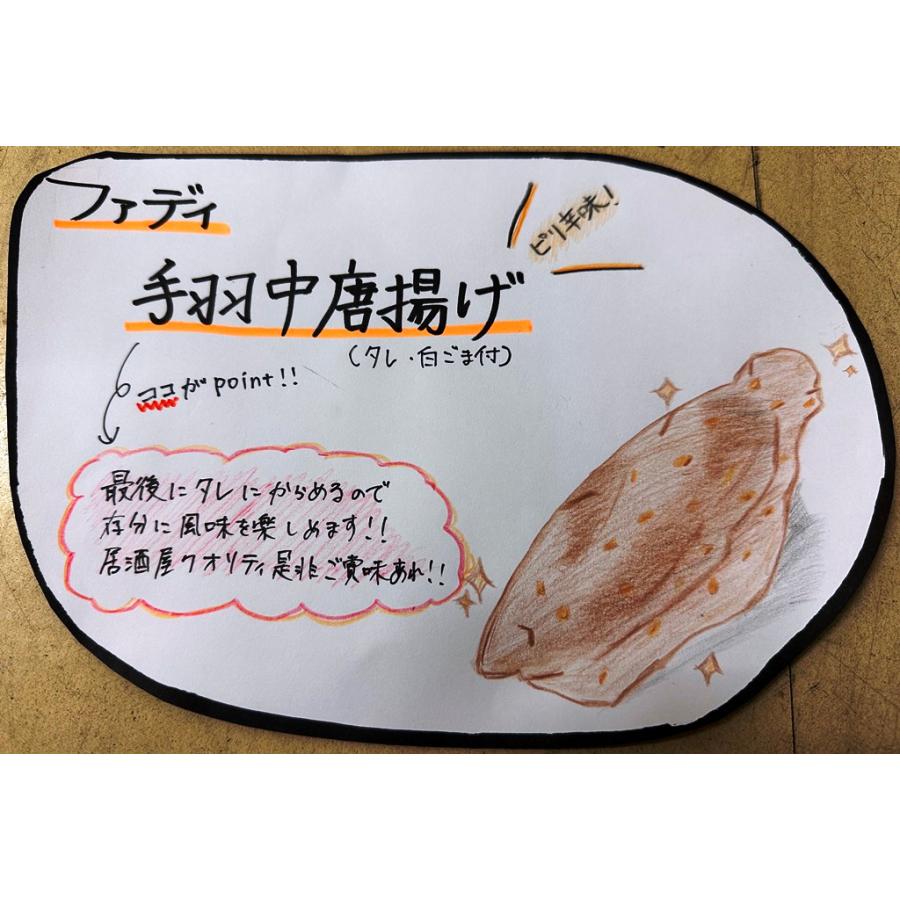 ファディ
ピリ辛味!
手羽中唐揚げ
(タレ・白ごま付)
ココがpoint!!
最後にタレにからめるので
存分に風味を楽しめます!!
居酒屋クオリティ是非ご賞味あれ!!